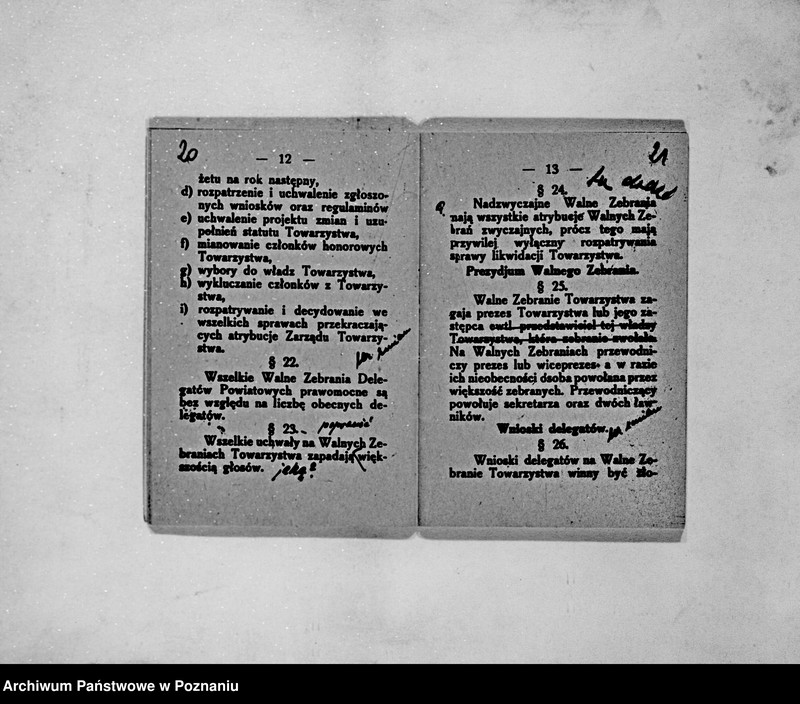 20
— 12 —
żetu na rok następny,
d) rozpatrzenie i uchwalenie zgłoszo-
nych wniosków oraz regulaminów
e) uchwalenie projektu zmian i uzu-
pełnień statutu Towarzystwa,
f) mianowanie członków honorowych
Towarzystwa,
g) wybory do władz Towarzystwa,
h) wykluczanie członków z Towarzy-
stwa,
i) rozpatrywanie i decydowanie we
wszelkich sprawach przekraczają-
cych atrybucje Zarządu Towarzy-
stwa.
§ 22.
Wszelkie Walne Zebrania Dele-
gatów Powiatowych prawomocne są
bez względu na liczbę obecnych de-
legatów.
§ 23.
poprawić
Wszelkie uchwały na Walnych Ze-
braniach Towarzystwa zapadają więk-
szością głosów. jaką?
21
— 13 —
§ 24.
Nadzwyczajne Walne Zebrania
mają wszystkie atrybucje Walnych Ze-
brań zwyczajnych, prócz tego mają
przywilej wyłączny rozpatrywania
sprawy likwidacji Towarzystwa.
Prezydjum Walnego Zebrania.
§ 25.
Walne Zebranie Towarzystwa za-
gaja prezes Towarzystwa lub jego za-
stępca ewtl. przedstawiciel tej władzy
Towarzystwa, która zebranie zwołała.
Na Walnych Zebraniach przewodni-
czy prezes lub wiceprezes, a w razie
ich nieobecności osoba powołana przez
większość zebranych. Przewodniczący
powołuje sekretarza oraz dwóch ław-
ników.
Wnioski delegatów.
§ 26.
Wnioski delegatów na Walne Ze-
branie Towarzystwa winny być zło-
Archiwum Państwowe w Poznaniu